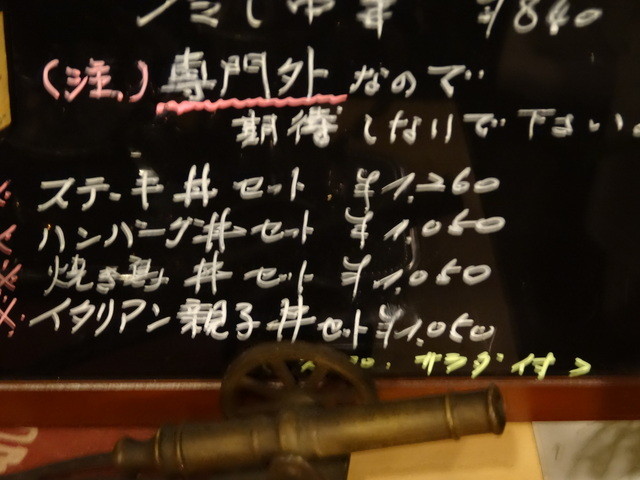 ¥840
(注.) 専門外なので
期待しないで下さい。
※ ステーキ丼セット ¥1,260
※ ハンバーグ丼セット ¥1,050
※ 焼き鳥丼セット ¥1,050
※ イタリアン親子丼セット ¥1,050
サラダ付